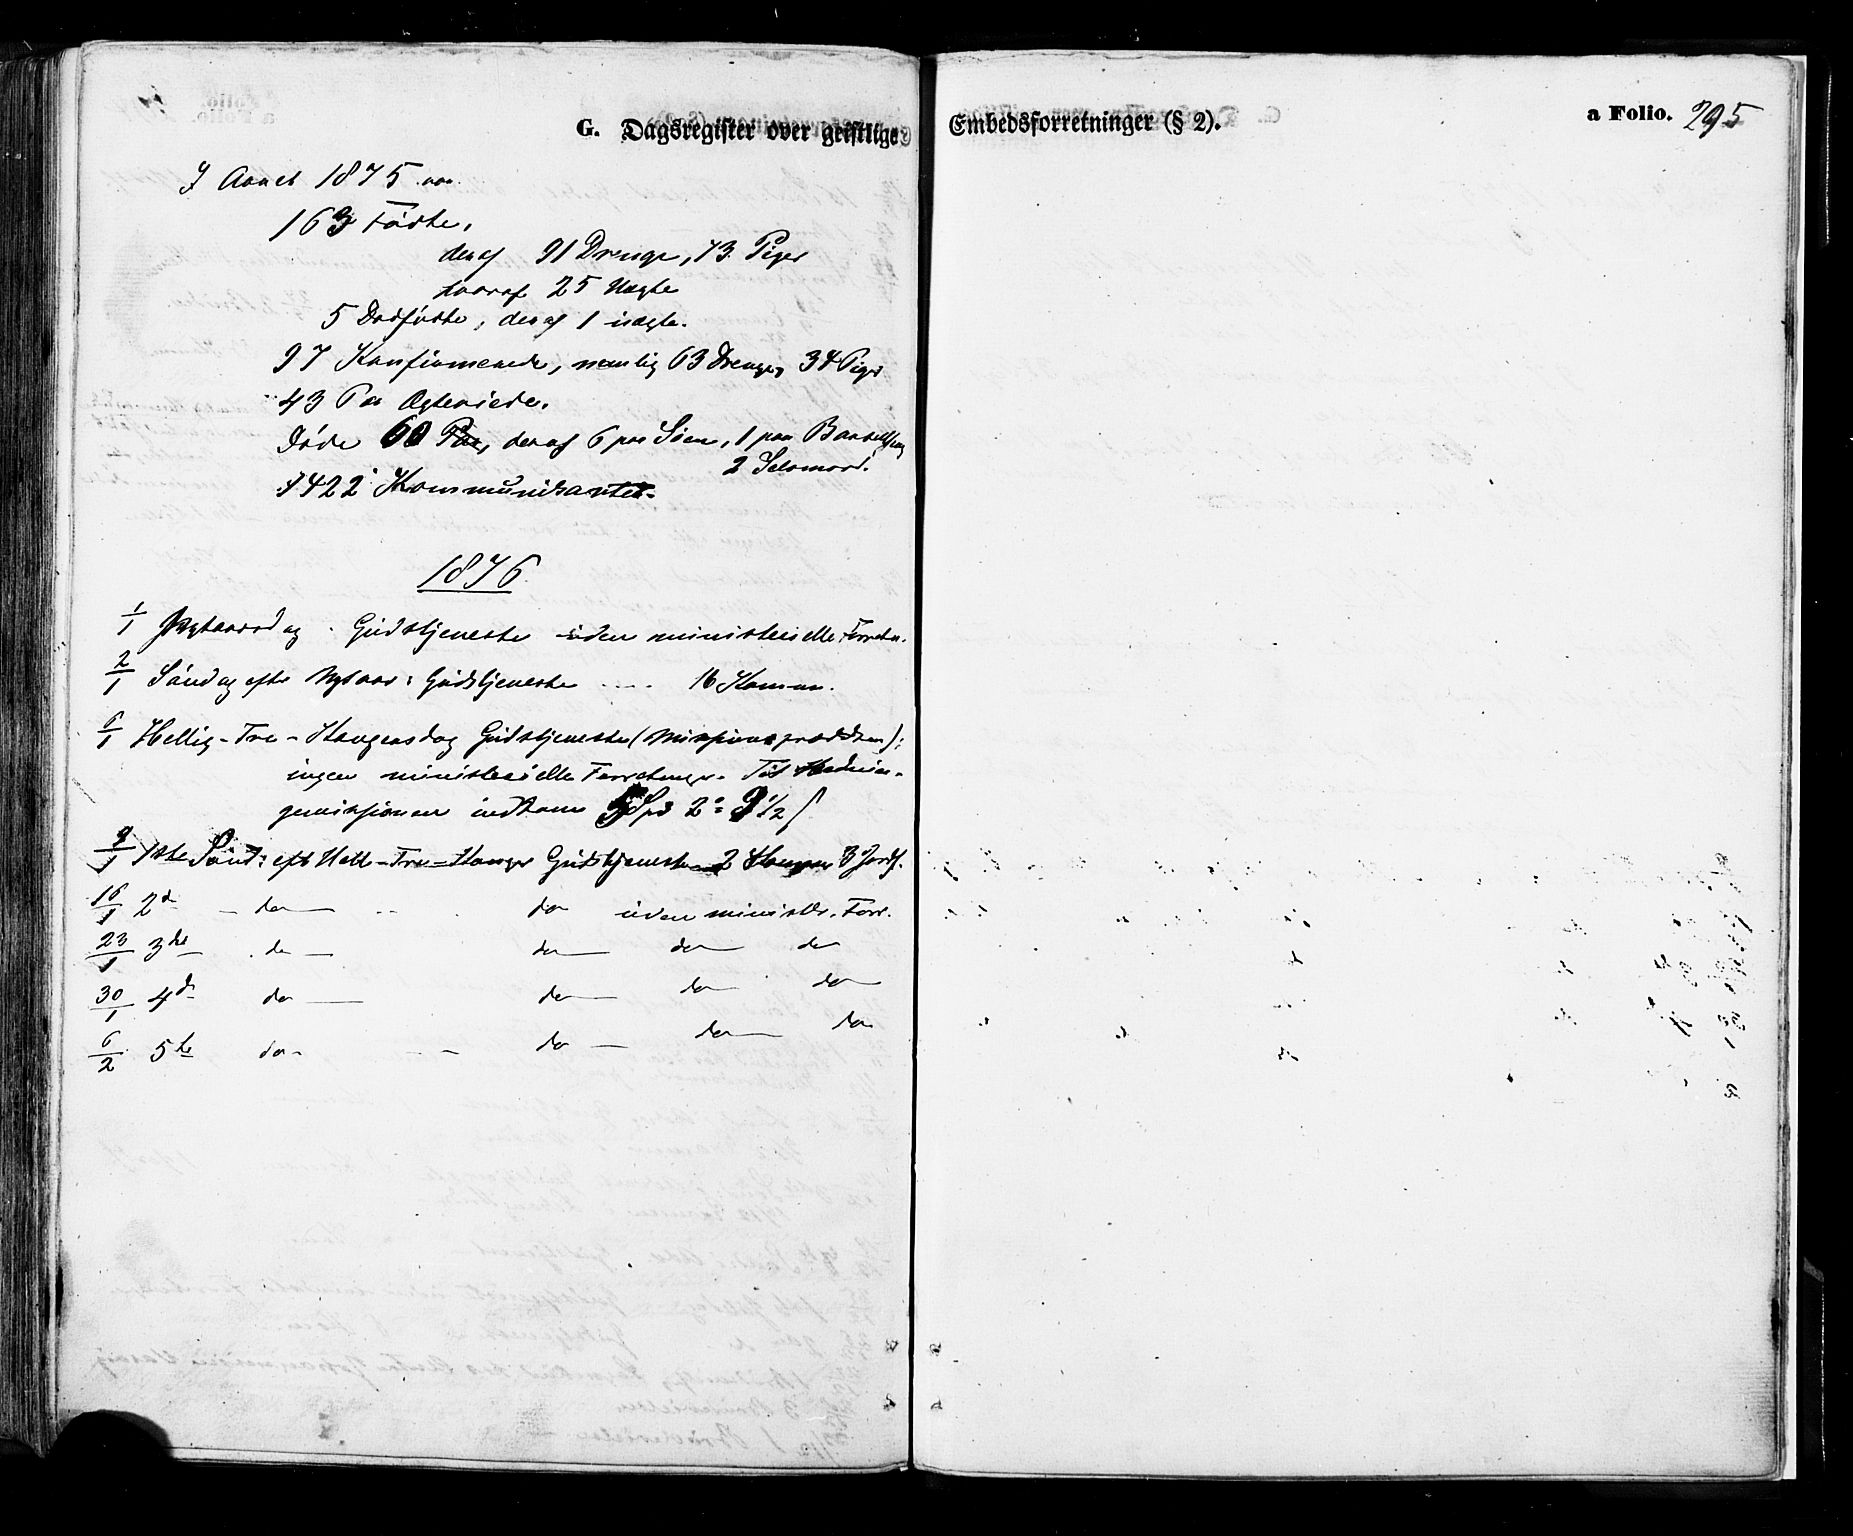 G. Dagsregister over geistlige Embedsforretninger (§ 2).
a Folio. 295
I Aaret 1875 var
163 Fødte,
deraf 91 Drenge, 73 Piger
hvoraf 25 Uægte
5 Dødfødte, deraf 1 uægte.
97 Konfirmerede, nemlig 63 Drenge, 34 Piger
43 Par Ægteviede.
Døde 60 Par, deraf 6 paa Søen, 1 paa Barselseng
2 Selvmord.
1422 Kommunikanter.
1876
1/1 Nytaarsdag. Gudstjeneste uden ministerielle Forretn.
2/1 Søndag efter Nytaar: Gudstjeneste .... 16 Kommun.
6/1 Hellig-Tre-Kongersdag Gudstjeneste (Missionspræddken);
ingen ministerielle Forretninger. Til Hedninge-
gemissionen indkom Spd 2 " 3 1/2 ſ
9/1 1ste Sønd: eft Hell-Tre-Konger Gudstjeneste 2 3 Jordf.
16/1 2d - do — do uden ministr. Forr.
23/1 3die — do — do — do — do
30/1 4d do — do — do — do
6/2 5te do - - - do — do — do